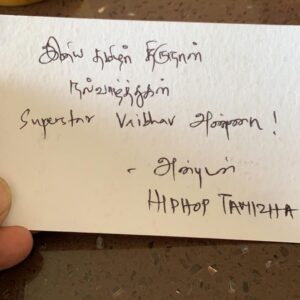 இனிய தமிழர் திருநாள்
நல்வாழ்த்துகள்
Superstar Vaibhav அண்ணா!
- அன்புடன்
HIPHOP TAMIZHA